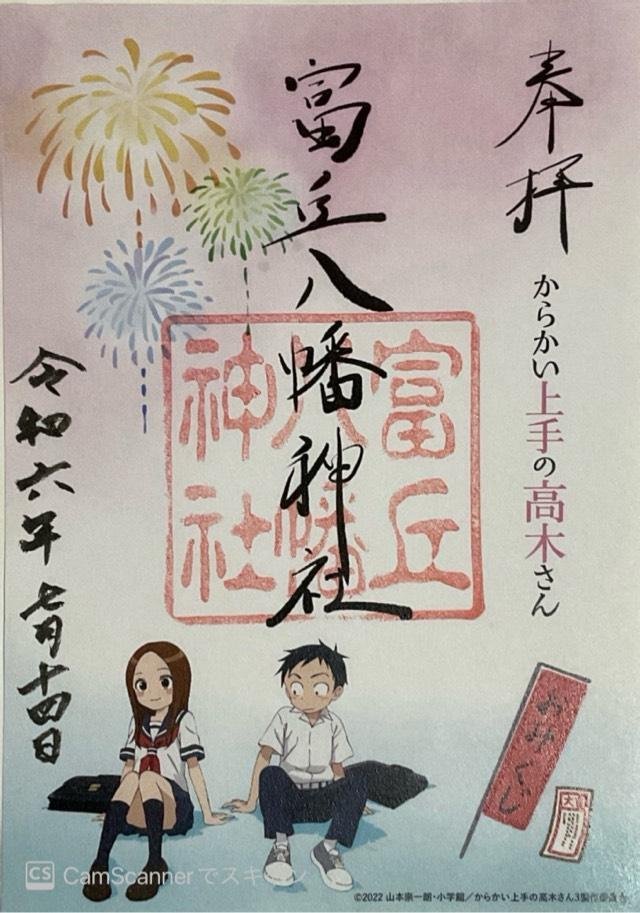 奉拝
からかい上手の高木さん
富丘八幡神社
富丘
八幡
神社
令和六年七月十四日
おみくじ
大吉
CS CamScannerでスキャン
©2022 山本崇一朗・小学館／からかい上手の高木さん3製作委員会